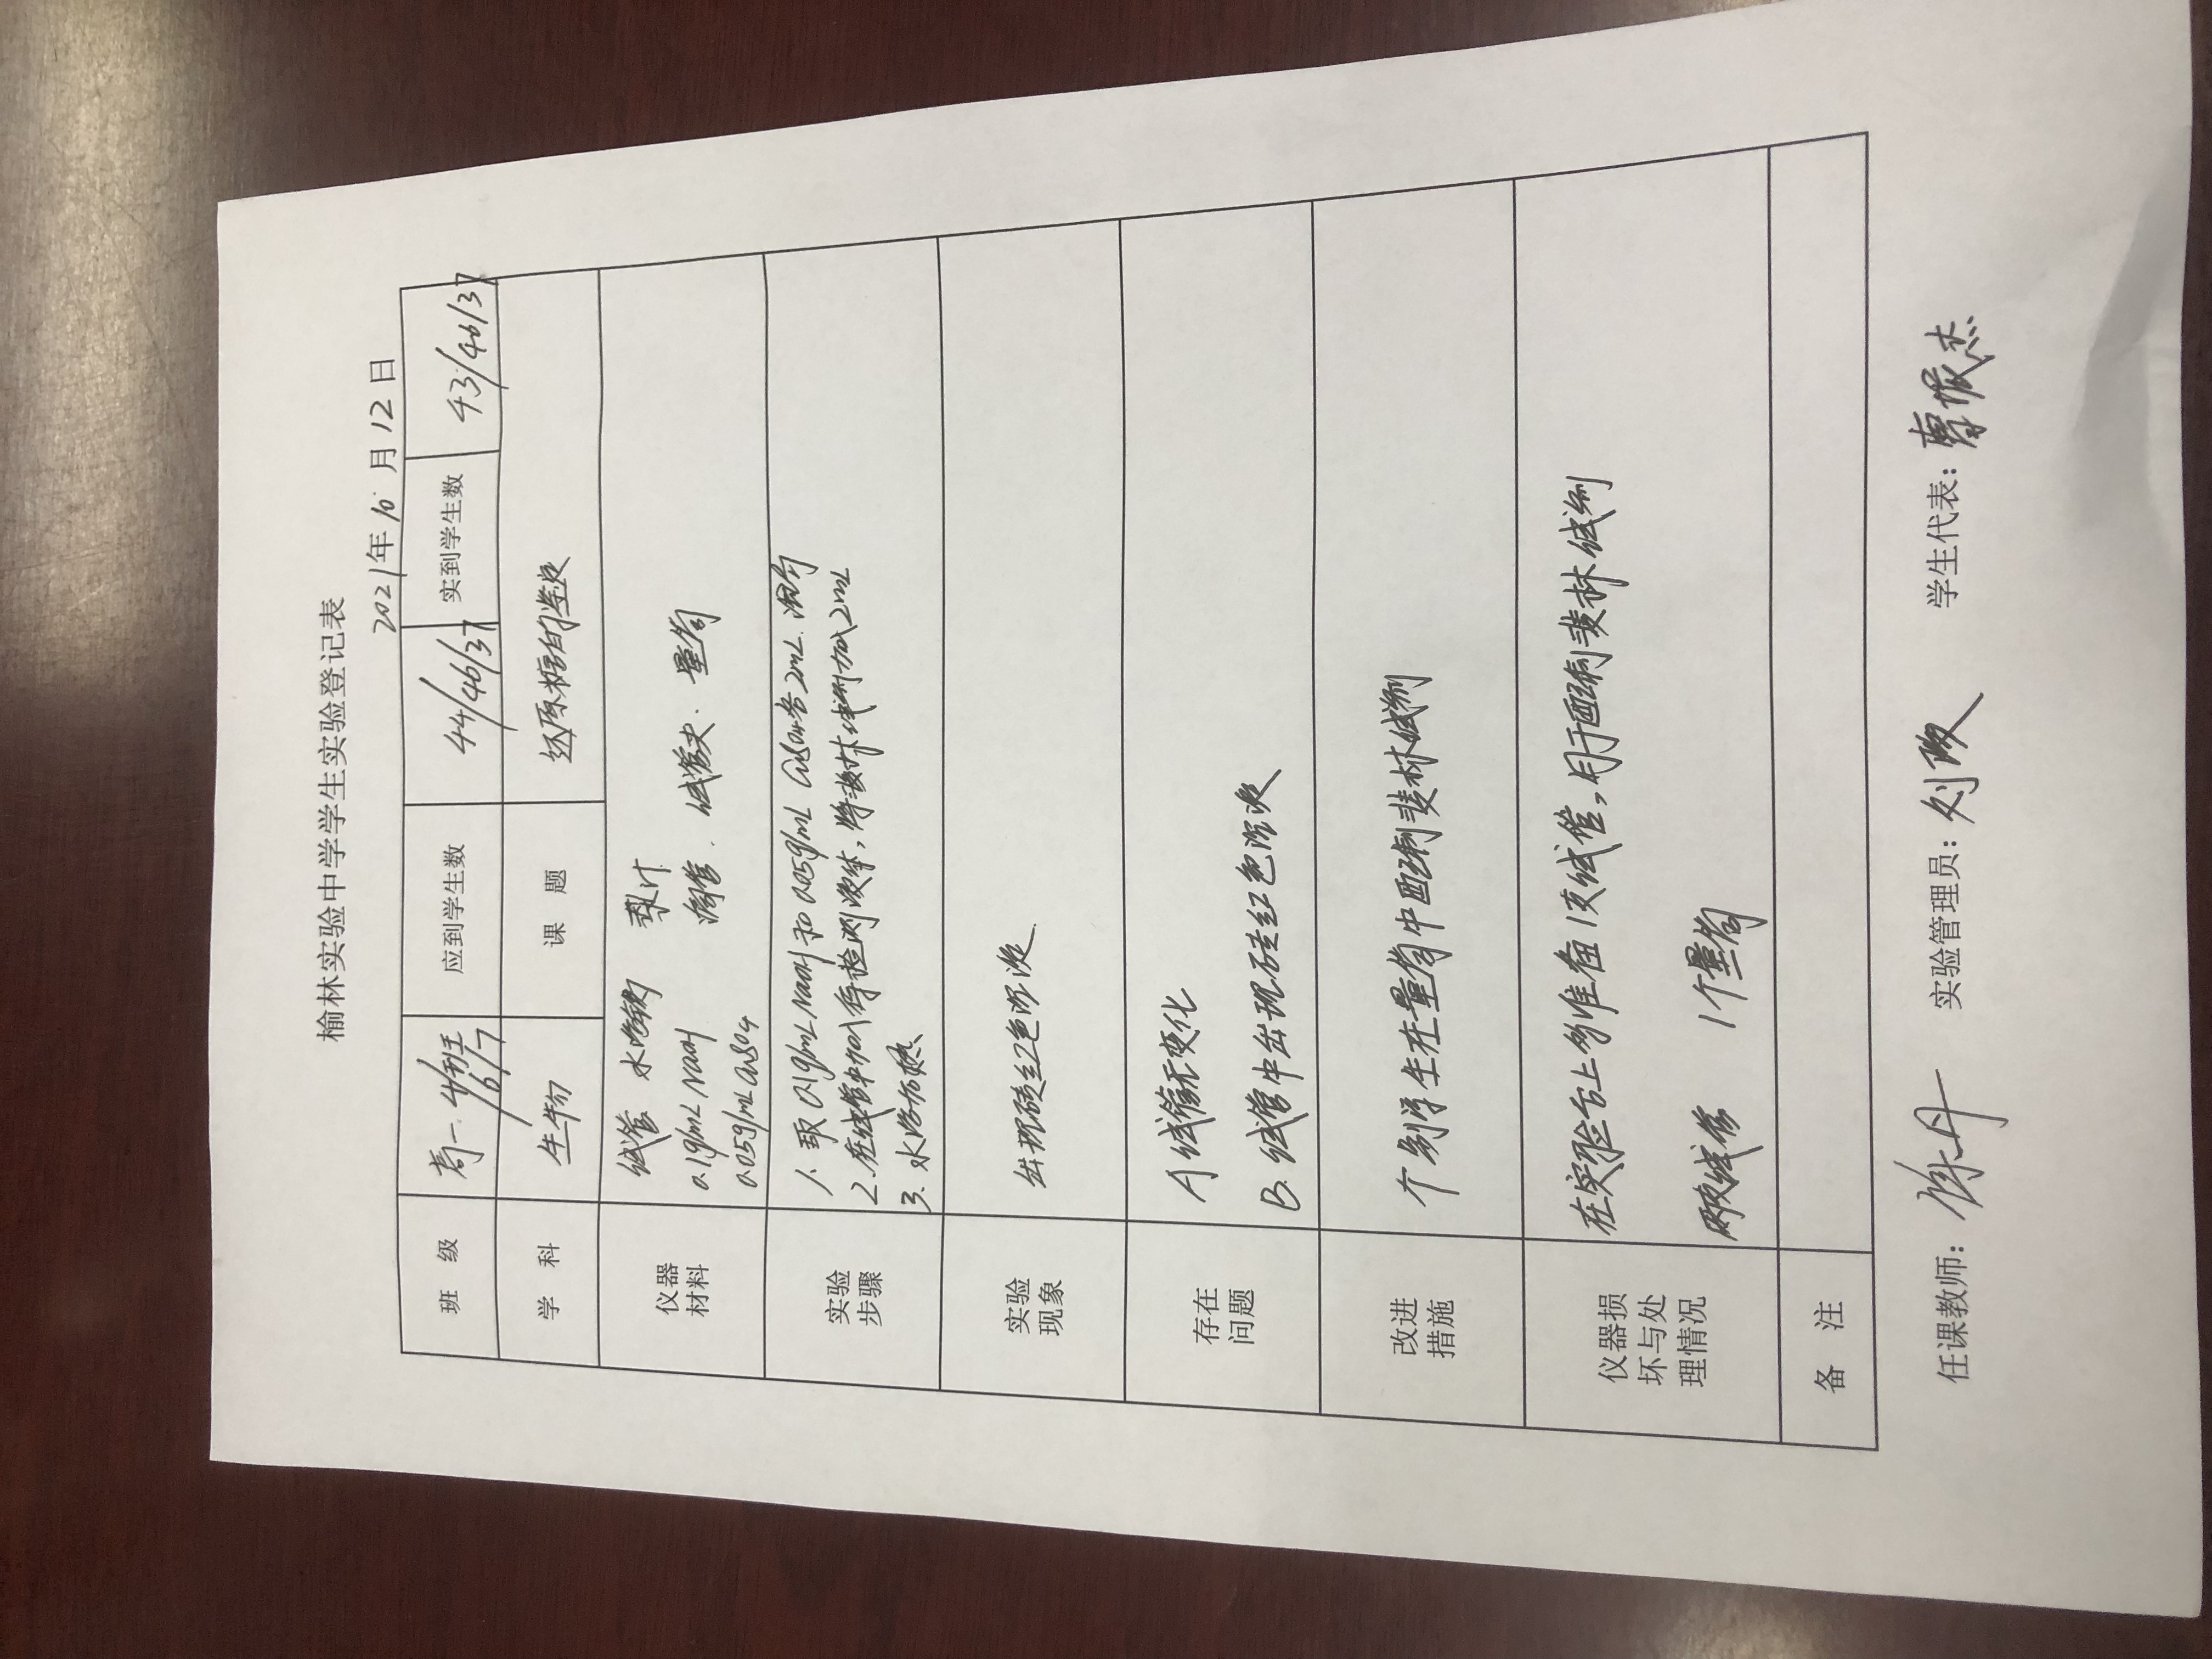 榆林实验中学学生实验登记表
2021年10月12日
班 级 高一.4/6/7班 应到学生数 44/46/37 实到学生数 43/46/37
学 科 生物 课 题 还原糖的鉴定
仪器材料
试管 水浴锅
0.1g/mL NaOH 滴管. 试管夹. 量筒
0.05g/mL CuSO4
实验步骤
1. 取0.1g/mL NaOH和0.05g/mL CuSO4各2mL.
2.在试管中加入待检测液体,将斐林试剂加入2mL
3. 水浴加热
实验现象
出现砖红色沉淀
存在问题
A 试管无变化
B. 试管中出现砖红色沉淀
改进措施
个别学生在量筒中配制斐林试剂
仪器损坏与处理情况
在实验台上多准备1支试管,用于配制斐林试剂
两支试管 1个量筒
备 注
任课教师: 实验管理员: 刘 学生代表: